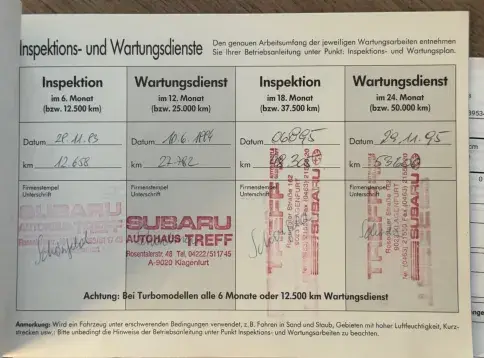 Inspektions- und Wartungsdienste
Den genauen Arbeitsumfang der jeweiligen Wartungsarbeiten entnehmen
Sie Ihrer Betriebsanleitung unter Punkt: Inspektions- und Wartungsplan.
Inspektion
im 6. Monat
(bzw. 12.500 km)
Datum 29.11.93
km 12.658
Firmenstempel
Unterschrift
SUBARU
Wartungsdienst
im 12. Monat
(bzw. 25.000 km)
Datum 10.6.1994
km 27.782
Firmenstempel
Unterschrift
SUBARU
AUTOHAUS TREFF
Rosentalerstr. 48 Tel. 04222/511745
A-9020 Klagenfurt
Inspektion
im 18. Monat
(bzw. 37.500 km)
Datum 060695
km
Firmenstempel
Unterschrift
SUBARU
Wartungsdienst
im 24. Monat
(bzw. 50.000 km)
Datum 29.11.95
km
Firmenstempel
Unterschrift
SUBARU
Achtung: Bei Turbomodellen alle 6 Monate oder 12.500 km Wartungsdienst
Anmerkung: Wird ein Fahrzeug unter erschwerenden Bedingungen verwendet, z.B. Fahren in Sand und Staub, Gebieten mit hoher Luftfeuchtigkeit, Kurz-
strecken usw.: Bitte unbedingt die Hinweise der Betriebsanleitung unter Punkt Inspektions- und Wartungsarbeiten zu beachten.